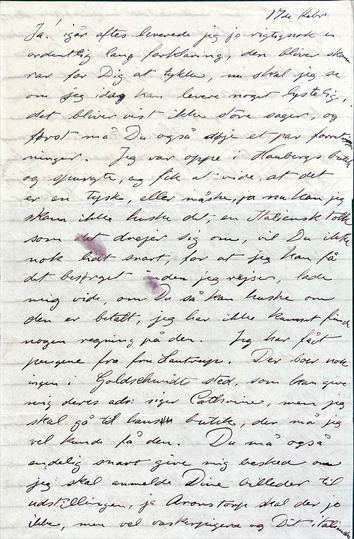 17de Febr
Ja! igår aftes leverede jeg jo rigtignok en
ordentlig lang forklaring, den bliver skam
rar for Dig at tykke, nu skal jeg se
om jeg idag kan levere noget lystelig,
det bliver vist ikke store sager, og
først må Du også døje et par forret
ninger. Jeg var oppe i Haubergs butik
og spurgte, og fik at vide, at det
er en tysk, eller måske, ja nu kan jeg
skam ikke huske det, en Italiensk
som det drejer sig om, vil Du ikke
nok lidt snart, for at jeg kan få
det besørget inden jeg rejser, lade
mig vide, om Du så kan huske om
den er betalt, jeg har ikke kunnet finde
nogen regning på den. Jeg har fået
pengene fra fru Lautrup. Der boer nok
ingen i Goldschmidt sted, som kan give
mig deres adr: siger Cathrine, men jeg
skal gå til hans butik, der må jeg
vel kunde få den. Du må også
endelig snart give mig besked om
jeg skal anmelde Dine billeder til
udstillingen, ja skal der jo
ikke, men vel vaskerpigerne og Dit italienske